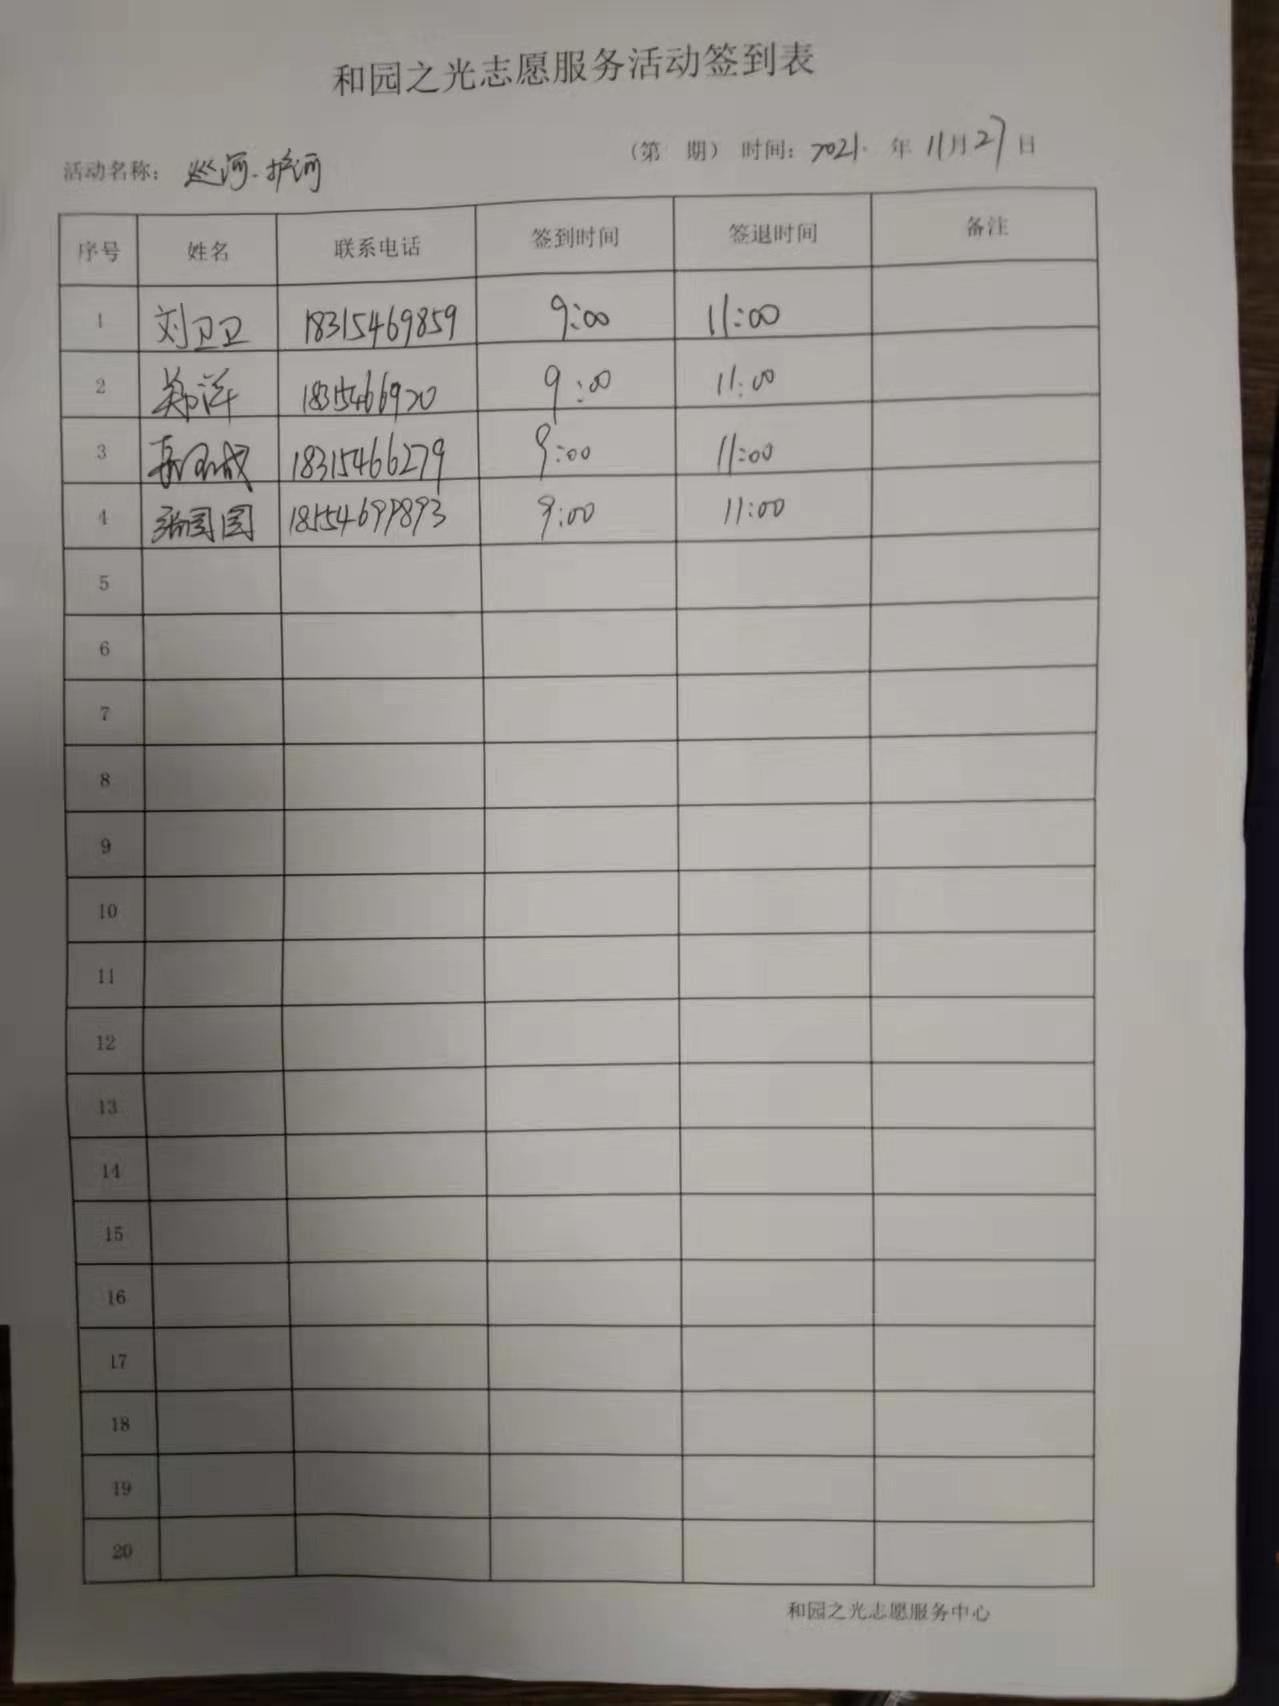 和园之光志愿服务活动签到表
活动名称: 巡河.护河 (第 期) 时间: 2021. 年 11月27日
序号 姓名 联系电话 签到时间 签退时间 备注
1 刘卫卫 18315469859 9:00 11:00
2 郑洋 1831546692 9:00 11:00
3 18315466279 9:00 11:00
4 张园园 9:00 11:00
5
6
7
8
9
10
11
12
13
14
15
16
17
18
19
20
和园之光志愿服务中心